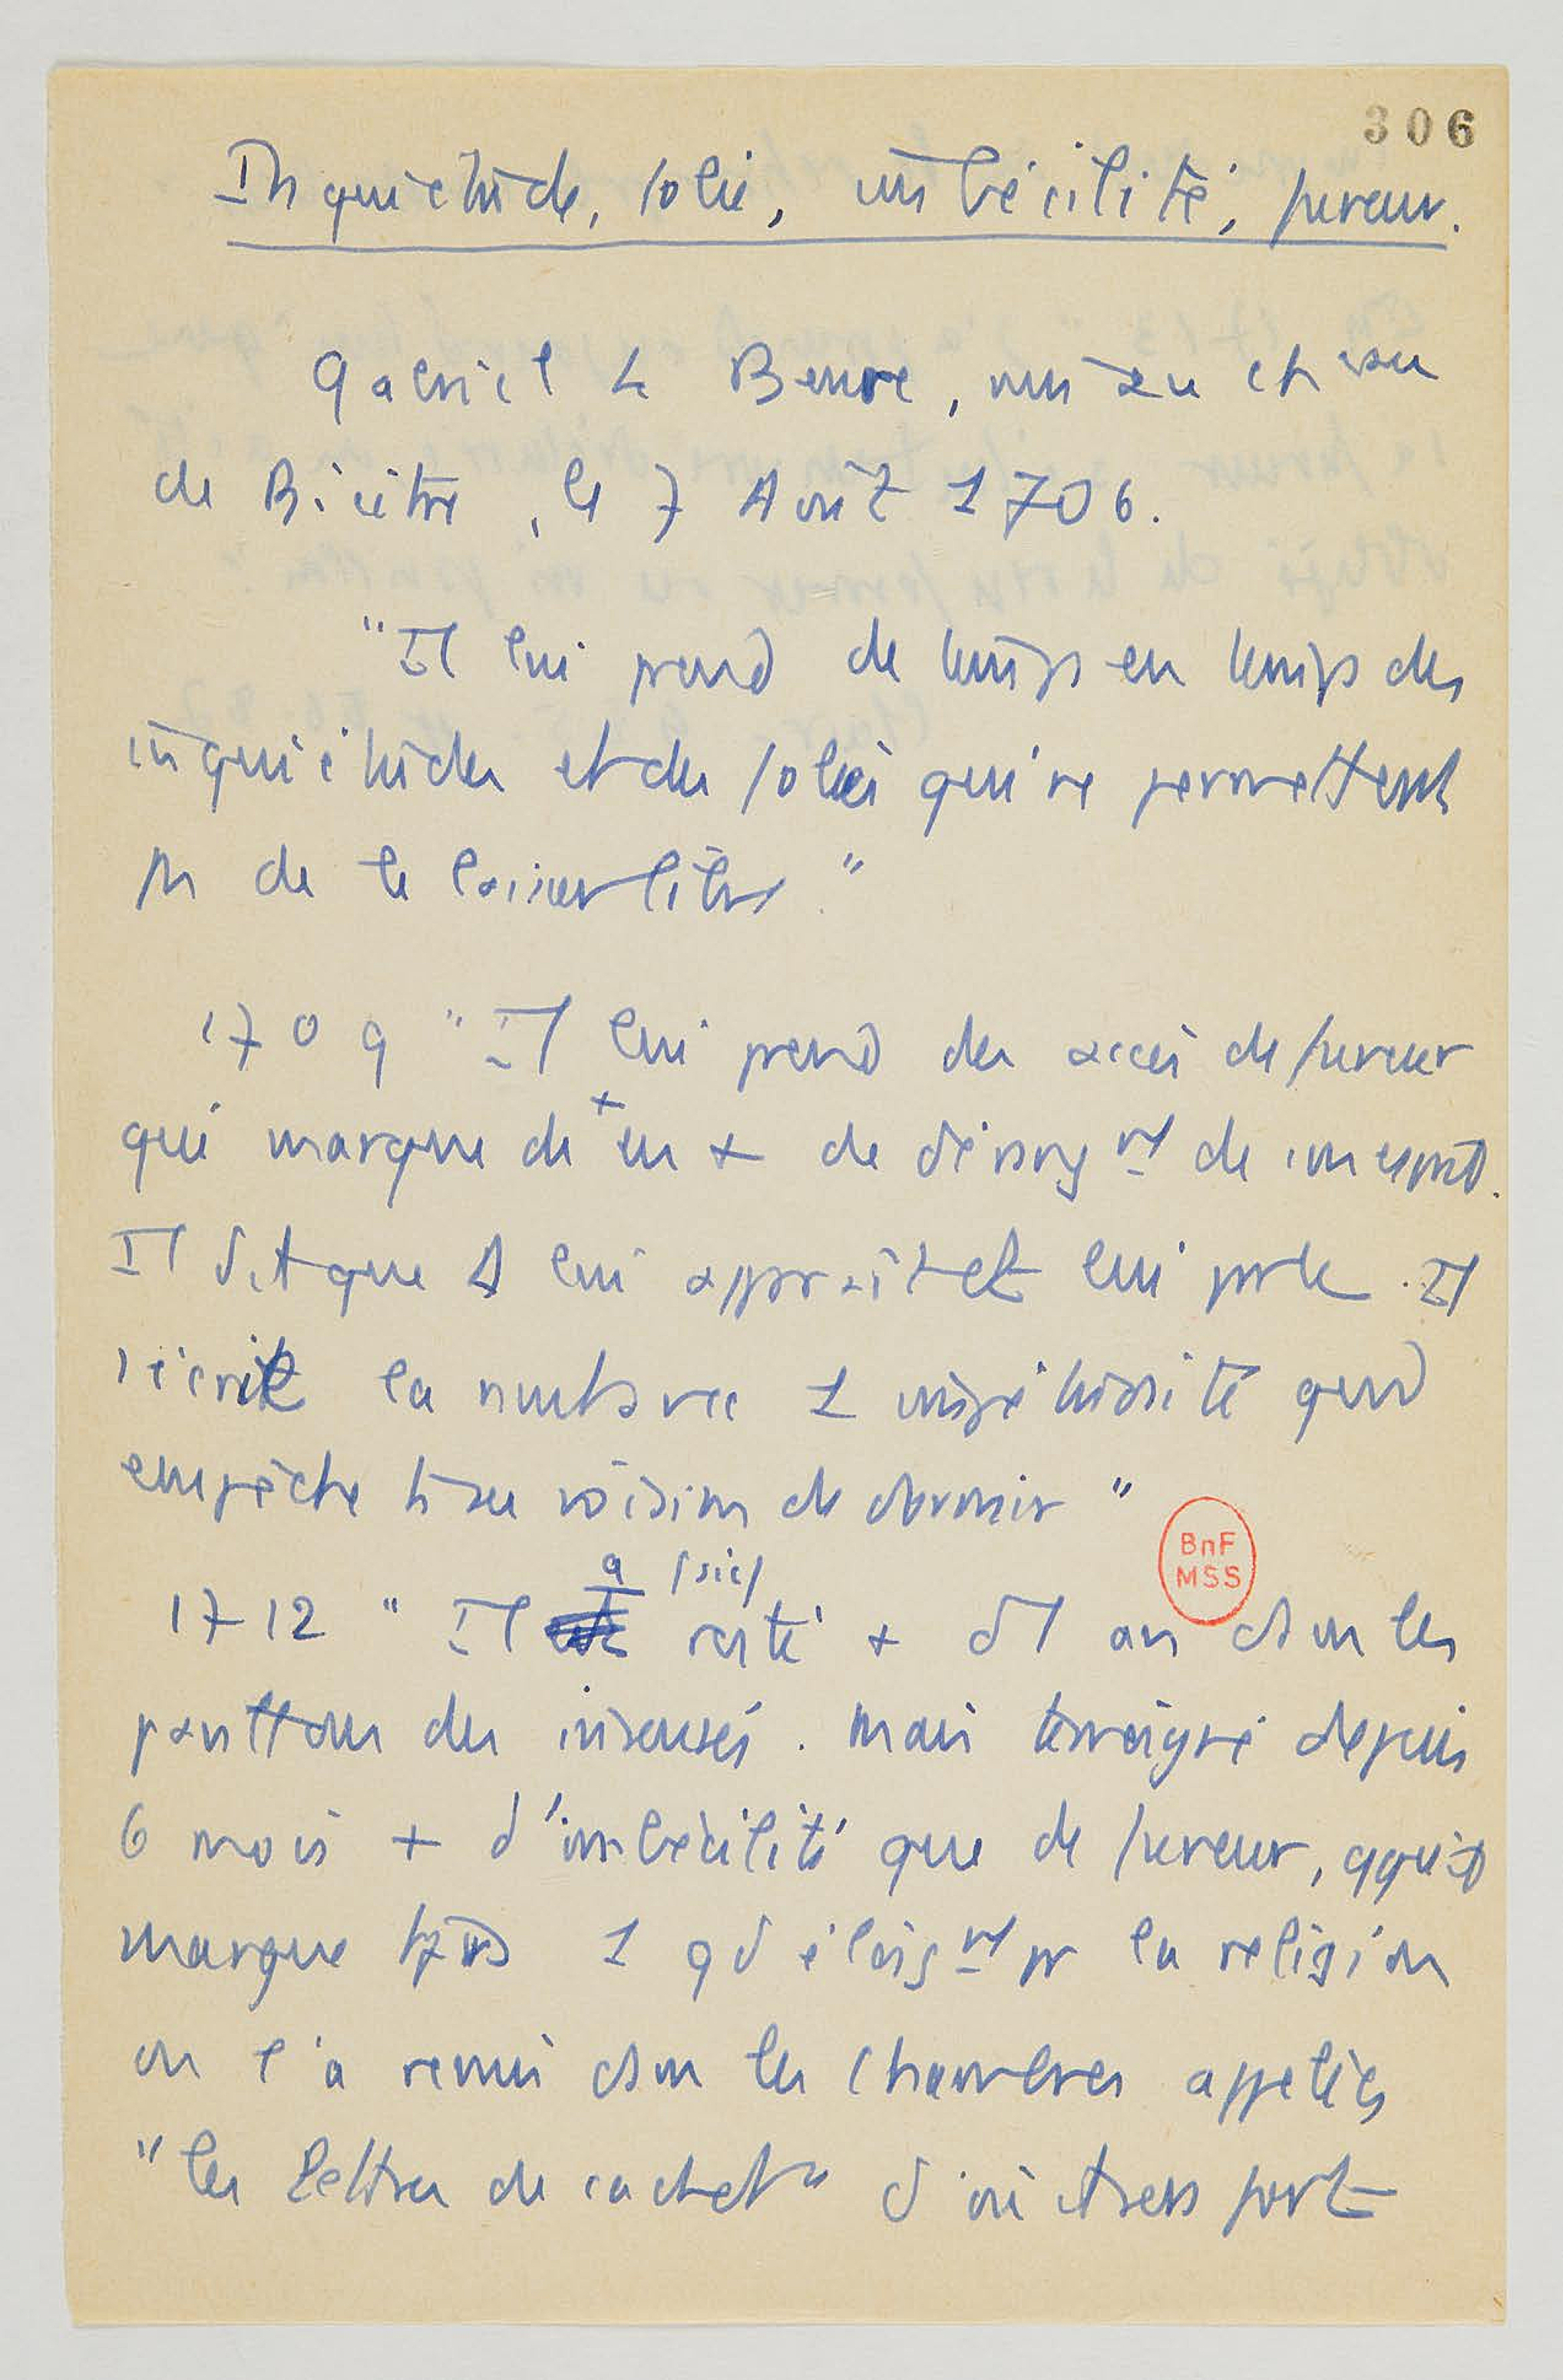 306
Inquiétude, folie, imbécilité, fureur.
Gabriel Le Beurre, mis au château
de Bicêtre, le 7 Août 1706.
"Il lui prend de temps en temps des
inquiétudes et des folies qui ne permettent
pas de le laisser libre."
1709 "Il lui prend des accès de fureur
qui marque de + en + de déreg mt de son esprit.
Il dit que lui apparaît et lui parle. Il
s'écrit la nuit avec 1 impétuosité qui
empêche tous ses voisins de dormir"
a (sic)
1712 " Il resté + d'1 an dans les
BnF
MSS
pavillons des insensés. Mais témoigné depuis
6 mois + d'imbécilité que de fureur, qqu'il
marque tjrs 1 gd éloig mt pr la religion
on l'a remis dans les chambres appelées
"les lettres de cachet" d'où